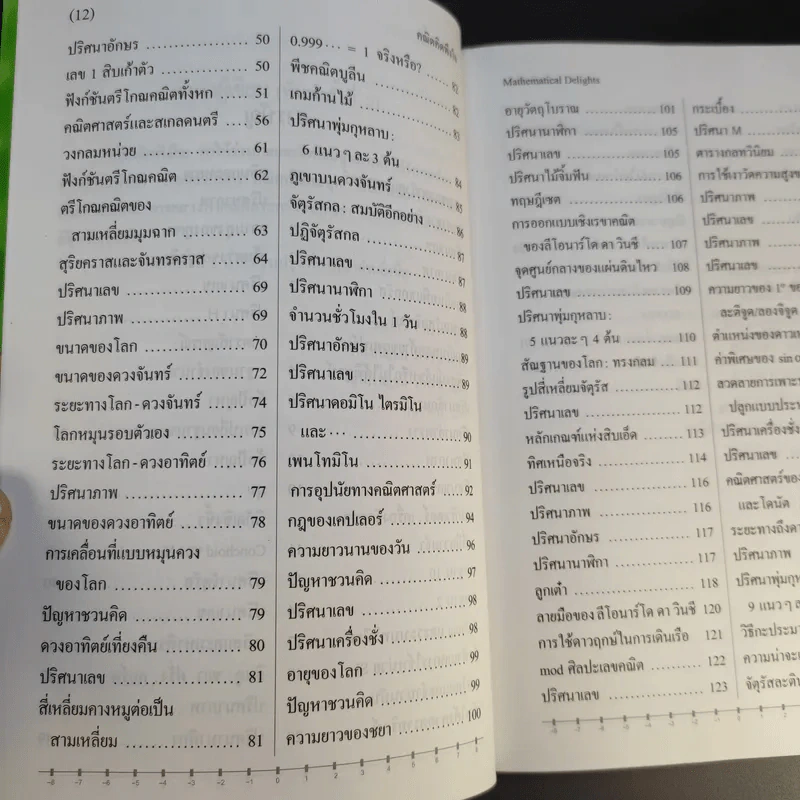 (12)
ปริศนาอักษร ........ 50
เลข 1 สิบเก้าตัว ........ 50
ฟังก์ชันตรีโกณคณิตทั้งหก ........ 51
คณิตศาสตร์และสเกลดนตรี ........ 56
วงกลมหน่วย ........ 61
ฟังก์ชันตรีโกณคณิต ........ 62
ตรีโกณคณิตของ
สามเหลี่ยมมุมฉาก ........ 63
สุริยคราสและจันทรคราส ........ 64
ปริศนาเลข ........ 69
ปริศนาภาพ ........ 69
ขนาดของโลก ........ 70
ขนาดของดวงจันทร์ ........ 72
ระยะทางโลก - ดวงจันทร์ ........ 74
โลกหมุนรอบตัวเอง ........ 75
ระยะทางโลก - ดวงอาทิตย์ ........ 76
ปริศนาภาพ ........ 77
ขนาดของดวงอาทิตย์ ........ 78
การเคลื่อนที่แบบหมุนควง
ของโลก ........ 79
ปัญหาชวนคิด ........ 79
ดวงอาทิตย์เที่ยงคืน ........ 80
ปริศนาเลข ........ 81
สี่เหลี่ยมคางหมูต่อเป็น
สามเหลี่ยม ........ 81
0.999 ··· = 1 จริงหรือ? ........ 82
พีชคณิตบูลีน ........ 82
เกมก้านไม้ ........ 83
ปริศนาพุ่มกุหลาบ :
6 แนว ๆ ละ 3 ต้น ........ 84
ภูเขาบนดวงจันทร์ ........ 85
จัตุรัสกล : สมบัติอีกอย่าง ........ 86
ปฏิจัตุรัสกล ........ 87
ปริศนาเลข ........ 87
ปริศนานาฬิกา ........ 88
จำนวนชั่วโมงใน 1 วัน ........ 88
ปริศนาอักษร ........ 89
ปริศนาเลข ........ 89
ปริศนาดอมิโน ไตรมิโน
และ ··· ........ 90
เพนโทมิโน ........ 91
การอุปนัยทางคณิตศาสตร์ ........ 92
กฎของเคปเลอร์ ........ 94
ความยาวนานของวัน ........ 96
ปัญหาชวนคิด ........ 97
ปริศนาเลข ........ 98
ปริศนาเครื่องชั่ง ........ 98
อายุของโลก ........ 99
ปัญหาชวนคิด ........ 99
ความยาวของชยา ........ 100
-8 -7 -6 -5 -4 -3 -2 -1 0 1 2 3 4 5 6 7 8
Mathematical Delights
อายุวัตถุโบราณ ........ 101
ปริศนานาฬิกา ........ 105
ปริศนาเลข ........ 105
ปริศนาไม้จิ้มฟัน ........ 106
ทฤษฎีเซต ........ 106
การออกแบบเชิงเรขาคณิต
ของลีโอนาร์โด ดา วินชี ........ 107
จุดศูนย์กลางของแผ่นดินไหว 108
ปริศนาเลข ........ 109
ปริศนาพุ่มกุหลาบ :
5 แนวละ ๆ 4 ต้น ........ 110
สัณฐานของโลก : ทรงกลม ........ 111
รูปสี่เหลี่ยมจัตุรัส ........ 112
ปริศนาเลข ........ 112
หลักเกณฑ์แห่งสิบเอ็ด ........ 113
ทิศเหนือจริง ........ 114
ปริศนาเลข ........ 116
ปริศนาภาพ ........ 116
ปริศนาอักษร ........ 117
ปริศนานาฬิกา ........ 117
ลูกเต๋า ........ 118
ลายมือของ ลีโอนาร์โด ดา วินชี 120
การใช้ดาวฤกษ์ในการเดินเรือ 121
mod ศิลปะเลขคณิต ........ 122
ปริศนาเลข ........ 123
กระเบื้อง
ปริศนา M
ตารางกลทวินิยม
การใช้เงาวัดความสูงข
ปริศนาภาพ
ปริศนาเลข
ปริศนาภาพ
ปริศนาเลข
ความยาวของ 1° ข
ละติจูด/ลองจิจูด
ตำแหน่งของดาว
ค่าพิเศษของ sin
ลวดลายการเพาะ
ปลูกแบบประ
ปริศนาเครื่องชั่ง
ปริศนาเลข
คณิตศาสตร์ของ
และไดนัด
ระยะทางถึงดา
ปริศนาภาพ
ปริศนาพุ่มกุ
9 แนว ๆ
วิธีกะประมา
ความน่าจะ
จัตุรัสละติน